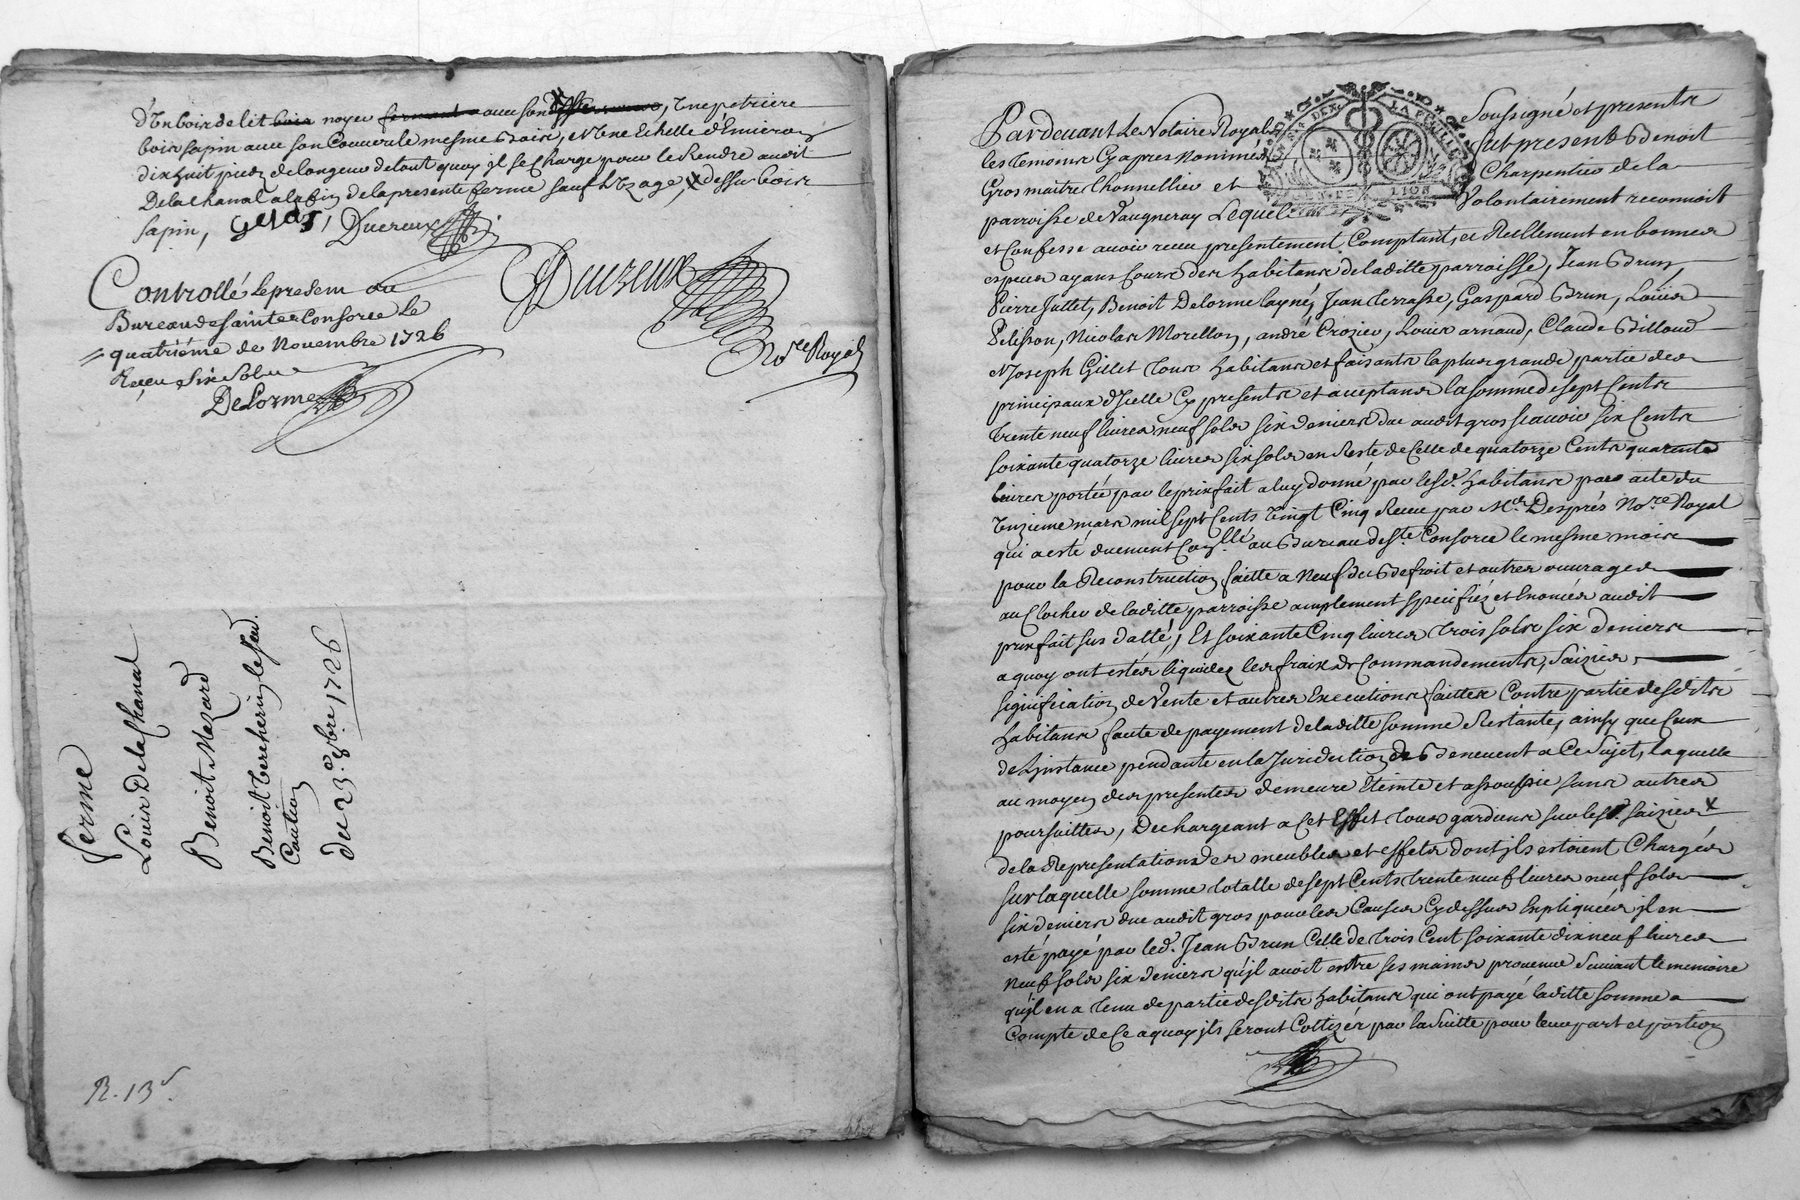 d'un bois de lit bois noyer fermant avec son, une petriere
bois sapin avec son Couvercle mesme Bois, et Une Echelle d'Emieron
dix huit pieds de longeur de tout quoy il se Charge pour le Rendre audit
Delachanal a la fin de la presente ferme sauf L'Usage, x dessu bois
sapin, Ducreux
Controllé le present au
Bureau de Sainte Consorce Le
quatriéme de Novembre 1726
Reçeu Six Sols
DeLorme
Ducreux
No.re Royal
ferme
Louis Delachanal
Benoit Mazard
Benoit Bercherin
Caution
Du 23.e 8bre 1726
R. 13
Pardevant Le Notaire Royal Sousigné et presents
les temoins Cy apres Nommés fut present Benoit
Gros maitre thonnellier et Charpentier de la
parroisse de Vaugneray Lequel Volontairement reconnoit
et Confesse avoir receu presentement Comptant, et Reellement en bonnes
especes ayans Cours des habitans de laditte parroisse, Jean Brun,
Pierre Jullet, Benoit Delorme layné, Jean terrasse, Gaspard Brun, Loüis
Pelisson, Nicolas Morellon, andré Crozier, Louis arnaud, Claude Billoud
et Joseph Gillet tous habitans et faisants la plus grande partie des
principaux d'Icelle Cy presents et aceptans la somme de sept Cents
trente neuf livres neuf sols six deniers due audit gros scauoir six Cents
soixante quatorze livres six sols en Reste de Celle de quatorze Cents quarente
livres portée par le prixfait a luy donné par lesd. habitans par acte du
unzieme mars mil sept Cents Vingt Cinq Receu par Me Després No.re Royal
qui a esté duement Con.llé au Bureau de Ste Consorce le mesme mois
pour la Reconstruction faitte a neuf du Beffroit et autres ouvrages
au Clocher de laditte parroisse amplement specifiéz et Enoncés audit
prixfait sus datté, Et soixante Cinq livres trois sols six deniers
a quoy ont estés liquidez les fraix de Commandements, Saizies,
signification de Vente et autres Executions faittes Contre partie desdits
habitans faute de payement de laditte somme Restante, ainsy que Ceux
de L'instance pendante en la Juridiction de Benevent a Ce Sujet, Laquelle
au moyen des presentes demeure Eteinte et assoupie sans autres
poursuittes, Dechargeant a Cet Effet tous gardiens sur lesd. saizies x
de la Representation des meubles et effets dont ils estoient Chargés
sur laquelle somme totalle de sept Cents trente neuf livres neuf sols
six deniers due audit gros pour les Causes Cy dessus Expliquées il en
esté payé par led. Jean Brun Celle de trois Cent soixante dix neuf livres
neuf sols six deniers qu'jl avoit entre ses mains provenue Suivant le memoire
qu'jl en a tenu de partie desdits habitans qui ont payé laditte somme a
Compte de Ce a quoy jls seront Cottizéz par la Suitte pour leur part et portion